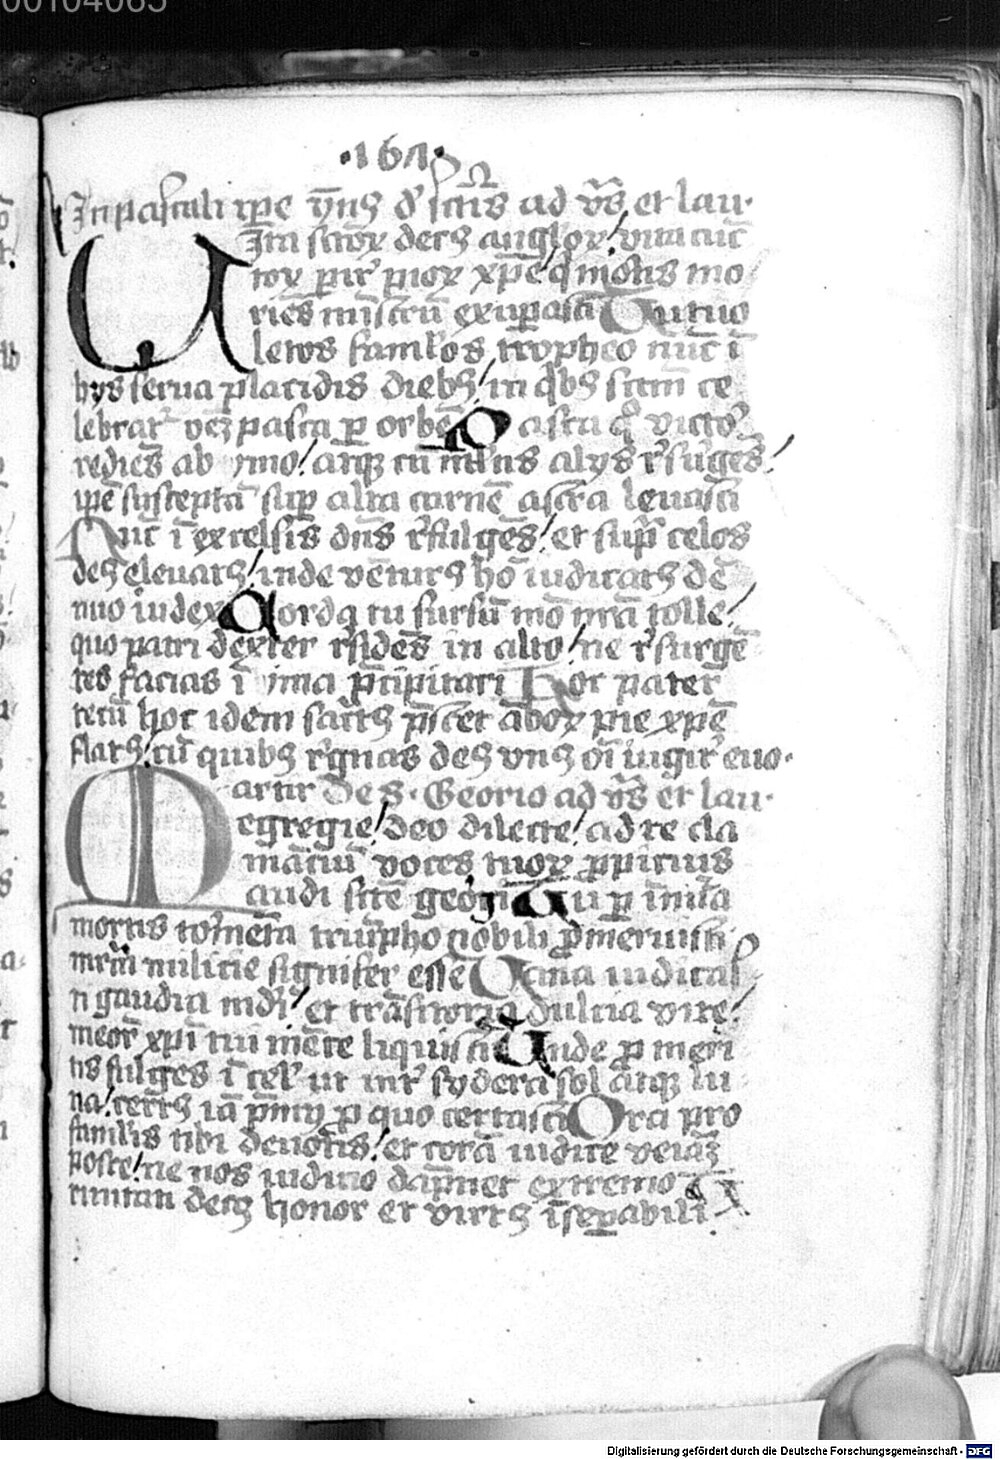 00104065
·161·
In pascali tp̄e ẏn̄9 d' sctīs ad v̄s̄ et lau·
Vita sctōꝝ dec9 angloꝝ! vita cūc
toꝝ p̄it' pioꝝ xp̄e! q̄ mōtis mo
riēs mīstrū exupasti Tu tuo
letos famlos tropheo nūc ī
hys serua placidis dieb9! in q̄b9 sctm̄ ce
lebrat' vēꝫ pasca p orbē Pasca q° victor
rediēs ab ymo! atqꝫ cū mltis alys r'surgēs!
ip̄e susceptā sup alta carnē astra leuasti
Nūc ī excelsis dn̄s r'fulgēs! et sup̄ celos
de9 eleuat9! inde vētur9 ho̅ iudicat9 dē
nuo iudex Corda tu sursū mō nr̄a tolle!
quo patri dexter r'sides in alto! ne r'surgē
tes facias ī yma p̄cipitari Hoc pater
tecū hoc idem sact9 p̄stet āboꝝ pie xp̄e
flat9! cū quib9 r'gnas de9 vn9 oī iugit' euo·
artir De S· Georio ad v̄s̄ et lau·
M egregie! deo dilecte! ad te cla
mātiū voces tuoꝝ ppicius
audi sctē georgi Tu p īmēsa
mortis tormēta triūpho nobili p̄meruisti
mr̄m militie signifer esse Vana iudicas
ti gaudia mdi! et trāsitoria dulcia vite!
meōr xp̄i tui mēte liquisti Unde p meri
tis fulges ī cel' ut int' sydera sol atqꝫ lu
na! terr9 iā p̄my p quo certasti Ora pro
famlis tibi deuotis! et corā iudice veiāꝫ
posce! ne nos iudicio dāpnet extremo
tinitati dec9 honor et virt9 īsepabili
Digitalisierung gefördert durch die Deutsche Forschungsgemeinschaft - DFG